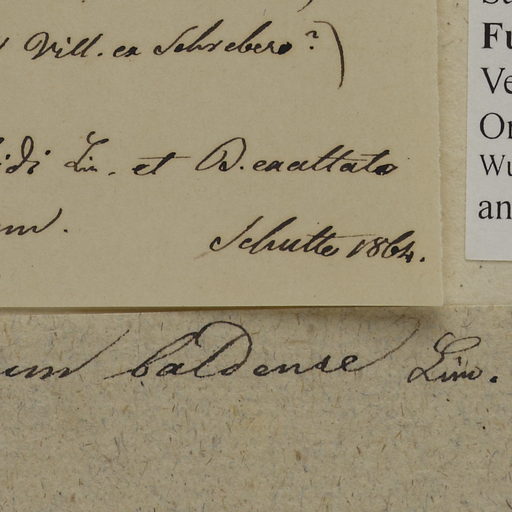 Vill. ex Schrebero?)
Lin. et B. exaltato
Schultz 1864.
baldense Lin.
Fu
Ve
Or
Wu
an